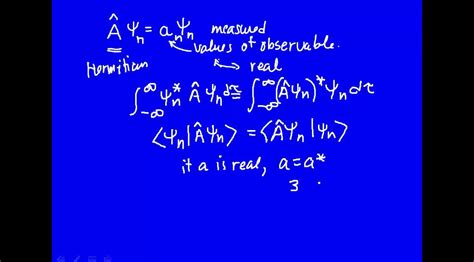 Â Ψₙ = aₙΨₙ measured
values of observable.
Hermitian real
∫_{-∞}^{∞} Ψₙ* Â Ψₙ dτ ≡ ∫_{-∞}^{∞} (ÂΨₙ)* Ψₙ dτ
⟨Ψₙ|ÂΨₙ⟩ = ⟨ÂΨₙ|Ψₙ⟩
if a is real, a = a*
3